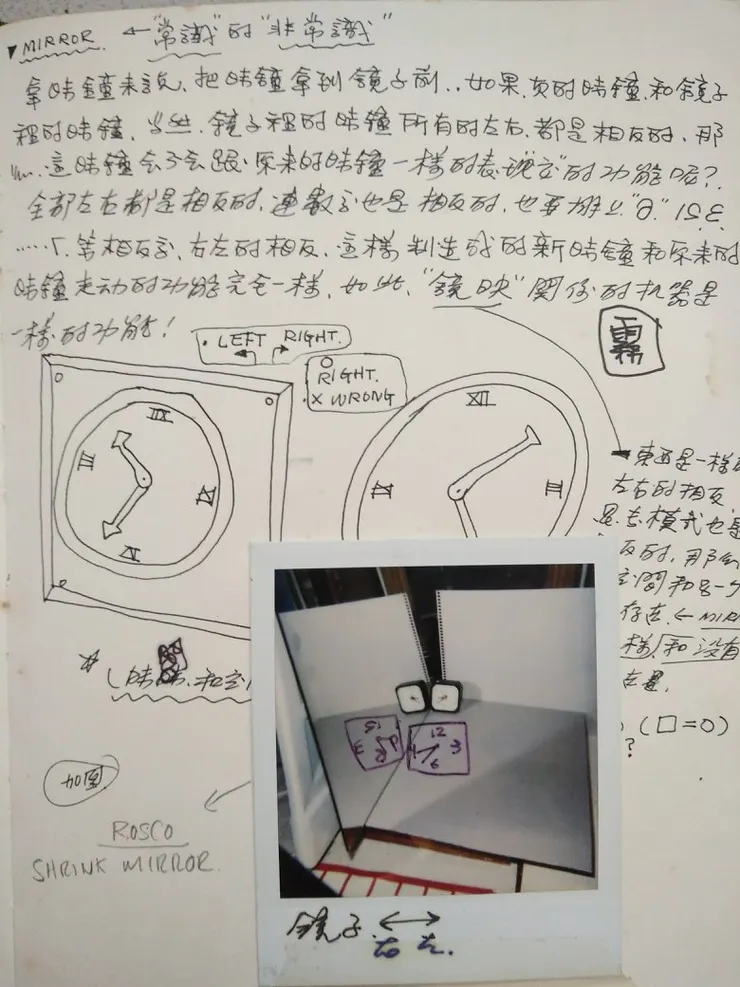 MIRROR. ← "常識"的"非常識"
拿時鐘來說, 把時鐘拿到鏡子前.. 如果, 真的時鐘, 和鏡子
裡的時鐘, 当然, 鏡子裡的時鐘所有的左右, 都是相反的, 那
這時鐘会不会跟原來的時鐘一樣的表現"玄"的功能呢??
全部左右都是相反時, 連數字也是相反的, 也要
相反字, 右左的相反, 這樣制造成的新時鐘和原来的
時鐘走动的功能完全一樣, 如此, "鏡映"関係的机器是
一樣的功能!
• LEFT RIGHT.
O RIGHT.
X WRONG
霧
XII
III
IX
VI
XII
IX
III
東西是一樣
左右的相反
模式也是
反的,
間和另一
存在. ← MIR
樣, 和沒有
(□=0)
?
加圖
ROSCO
SHRINK MIRROR.
12
3
6
12
3
6
鏡子 ↔
右 左.